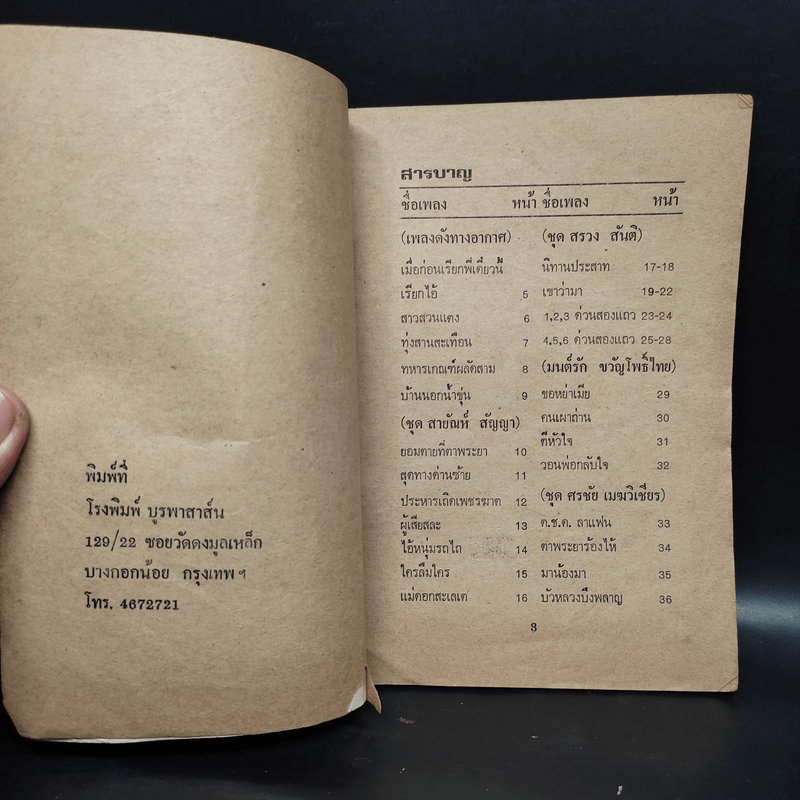 พิมพ์ที่
โรงพิมพ์ บูรพาสาส์น
129/22 ซอยวัดดงมูลเหล็ก
บางกอกน้อย กรุงเทพฯ
โทร. 4672721
สารบาญ
ชื่อเพลง หน้า
(เพลงดังทางอากาศ)
เมื่อก่อนเรียกพี่เดี๋ยวนี้
เรียกไอ้ 5
สาวสวนแตง 6
ทุ่งสานสะเทือน 7
ทหารเกณฑ์ผลัดสาม 8
บ้านนอกน้ำขุ่น 9
(ชุด สายัณห์ สัญญา)
ยอมตายที่ตาพระยา 10
สุดทางด่านซ้าย 11
ประหารเถิดเพชรฆาต 12
ผู้เสียสละ 13
ไอ้หนุ่มรถไถ 14
ใครลืมใคร 15
แม่ดอกสะเลเต 16
ชื่อเพลง หน้า
(ชุด สรวง สันติ)
นิทานประสาท 17-18
เขาว่ามา 19-22
1,2,3 ด่วนสองแถว 23-24
4,5,6 ด่วนสองแถว 25-28
(มนต์รัก ขวัญโพธิ์ไทย)
ขอหย่าเมีย 29
คนเผาถ่าน 30
ตีหัวใจ 31
วอนพ่อกลับใจ 32
(ชุด ศรชัย เมฆวิเชียร)
ต.ช.ด. ลาแฟน 33
ตาพระยาร้องไห้ 34
มาน้องมา 35
บัวหลวงบึงพลาญ 36
3